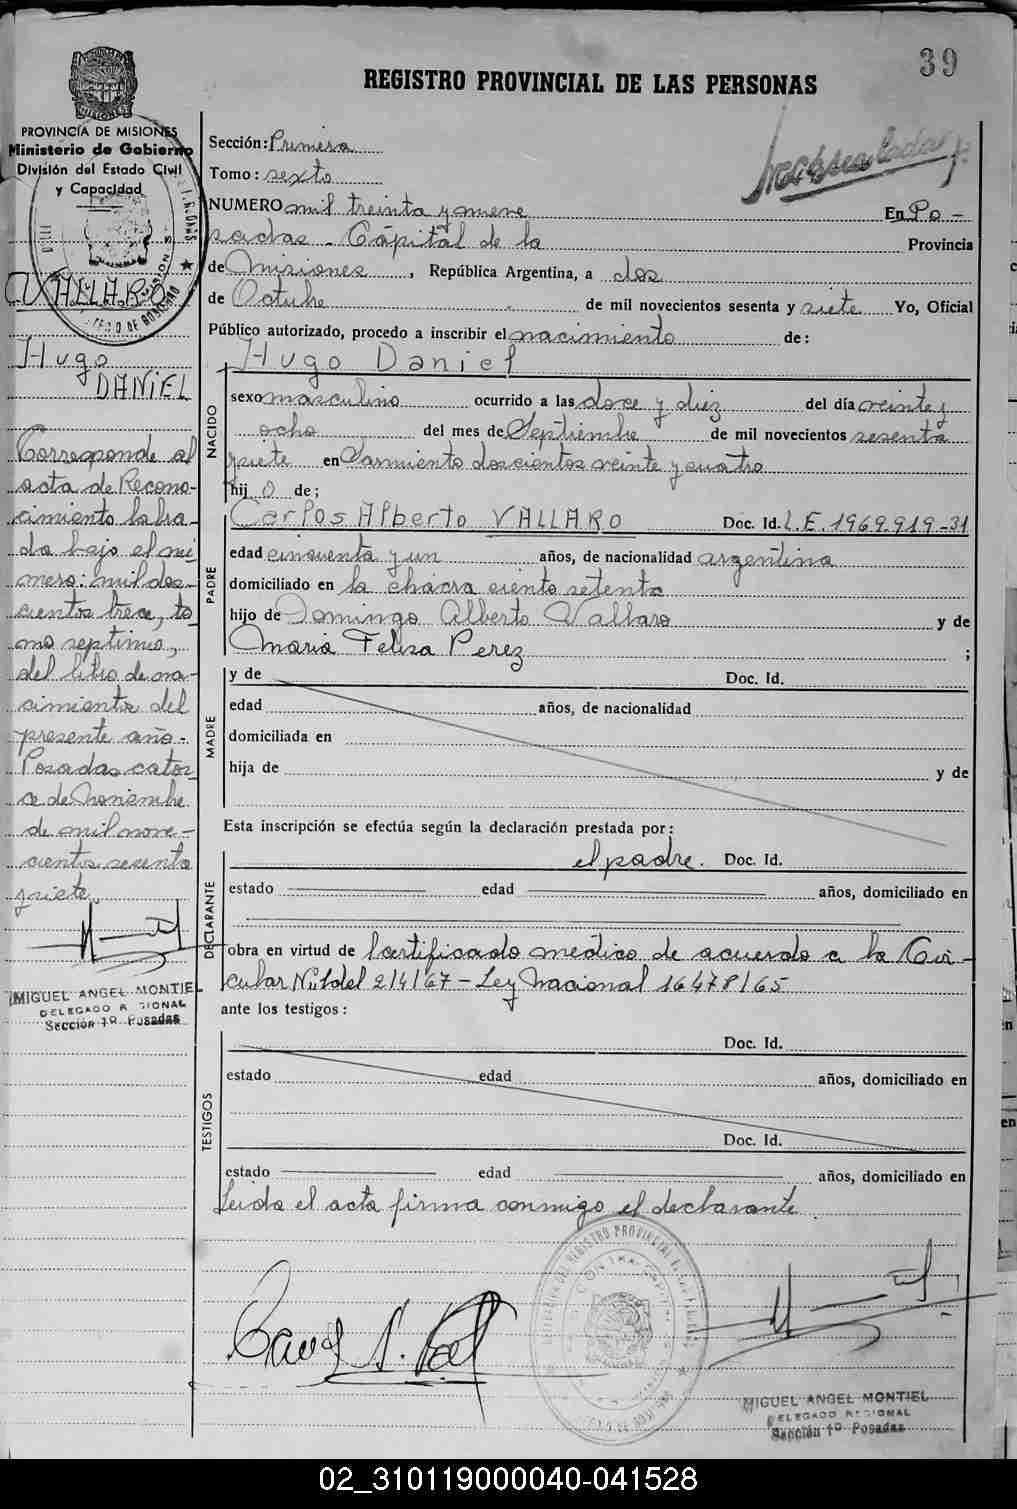 39
REGISTRO PROVINCIAL DE LAS PERSONAS
PROVINCIA DE MISIONES
Ministerio de Gobierno
División del Estado Civil
y Capacidad
VALLARO
Hugo
DANIEL
Corresponde al
acta de Recono-
cimiento labra-
da bajo el nú
mero: mil dos-
cientos trece, to
mo septimo,
del libro de na-
cimientos del
presente año.
Posadas cator
ce de Noviembre
de mil nove-
cientos sesenta
y siete.
MIGUEL ANGEL MONTIEL
DELEGADO REGIONAL
Sección 1º Posadas
Sección: Primera
Tomo: sexto
NUMERO mil treinta y nueve En Po-
sadas - Cápital de la Provincia
de Misiones, República Argentina, a dos
de Octubre de mil novecientos sesenta y siete Yo, Oficial
Público autorizado, procedo a inscribir el nacimiento de:
Hugo Daniel
NACIDO
sexo masculino ocurrido a las doce y diez del día veinte y
ocho del mes de Septiembre de mil novecientos sesenta
y siete en Sarmiento doscientos veinte y cuatro
hij o de;
PADRE
Carlos Alberto VALLARO Doc. Id. L.E. 1969.919-31
edad cincuenta y un años, de nacionalidad argentina
domiciliado en la chacra ciento setenta
hijo de Domingo Alberto Vallaro y de
Maria Felisa Perez ;
MADRE
y de Doc. Id.
edad años, de nacionalidad
domiciliada en
hija de y de
Esta inscripción se efectúa según la declaración prestada por:
DECLARANTE
el padre. Doc. Id.
estado edad años, domiciliado en
obra en virtud de Certificado médico de acuerdo a la Cir-
cular Nº 1 del 2/4/67 - Ley Nacional 16478/65
ante los testigos:
TESTIGOS
Doc. Id.
estado edad años, domiciliado en
Doc. Id.
estado edad años, domiciliado en
Leida el acta firma conmigo el declarante
MIGUEL ANGEL MONTIEL
DELEGADO REGIONAL
Sección 1º Posadas
02_310119000040-041528